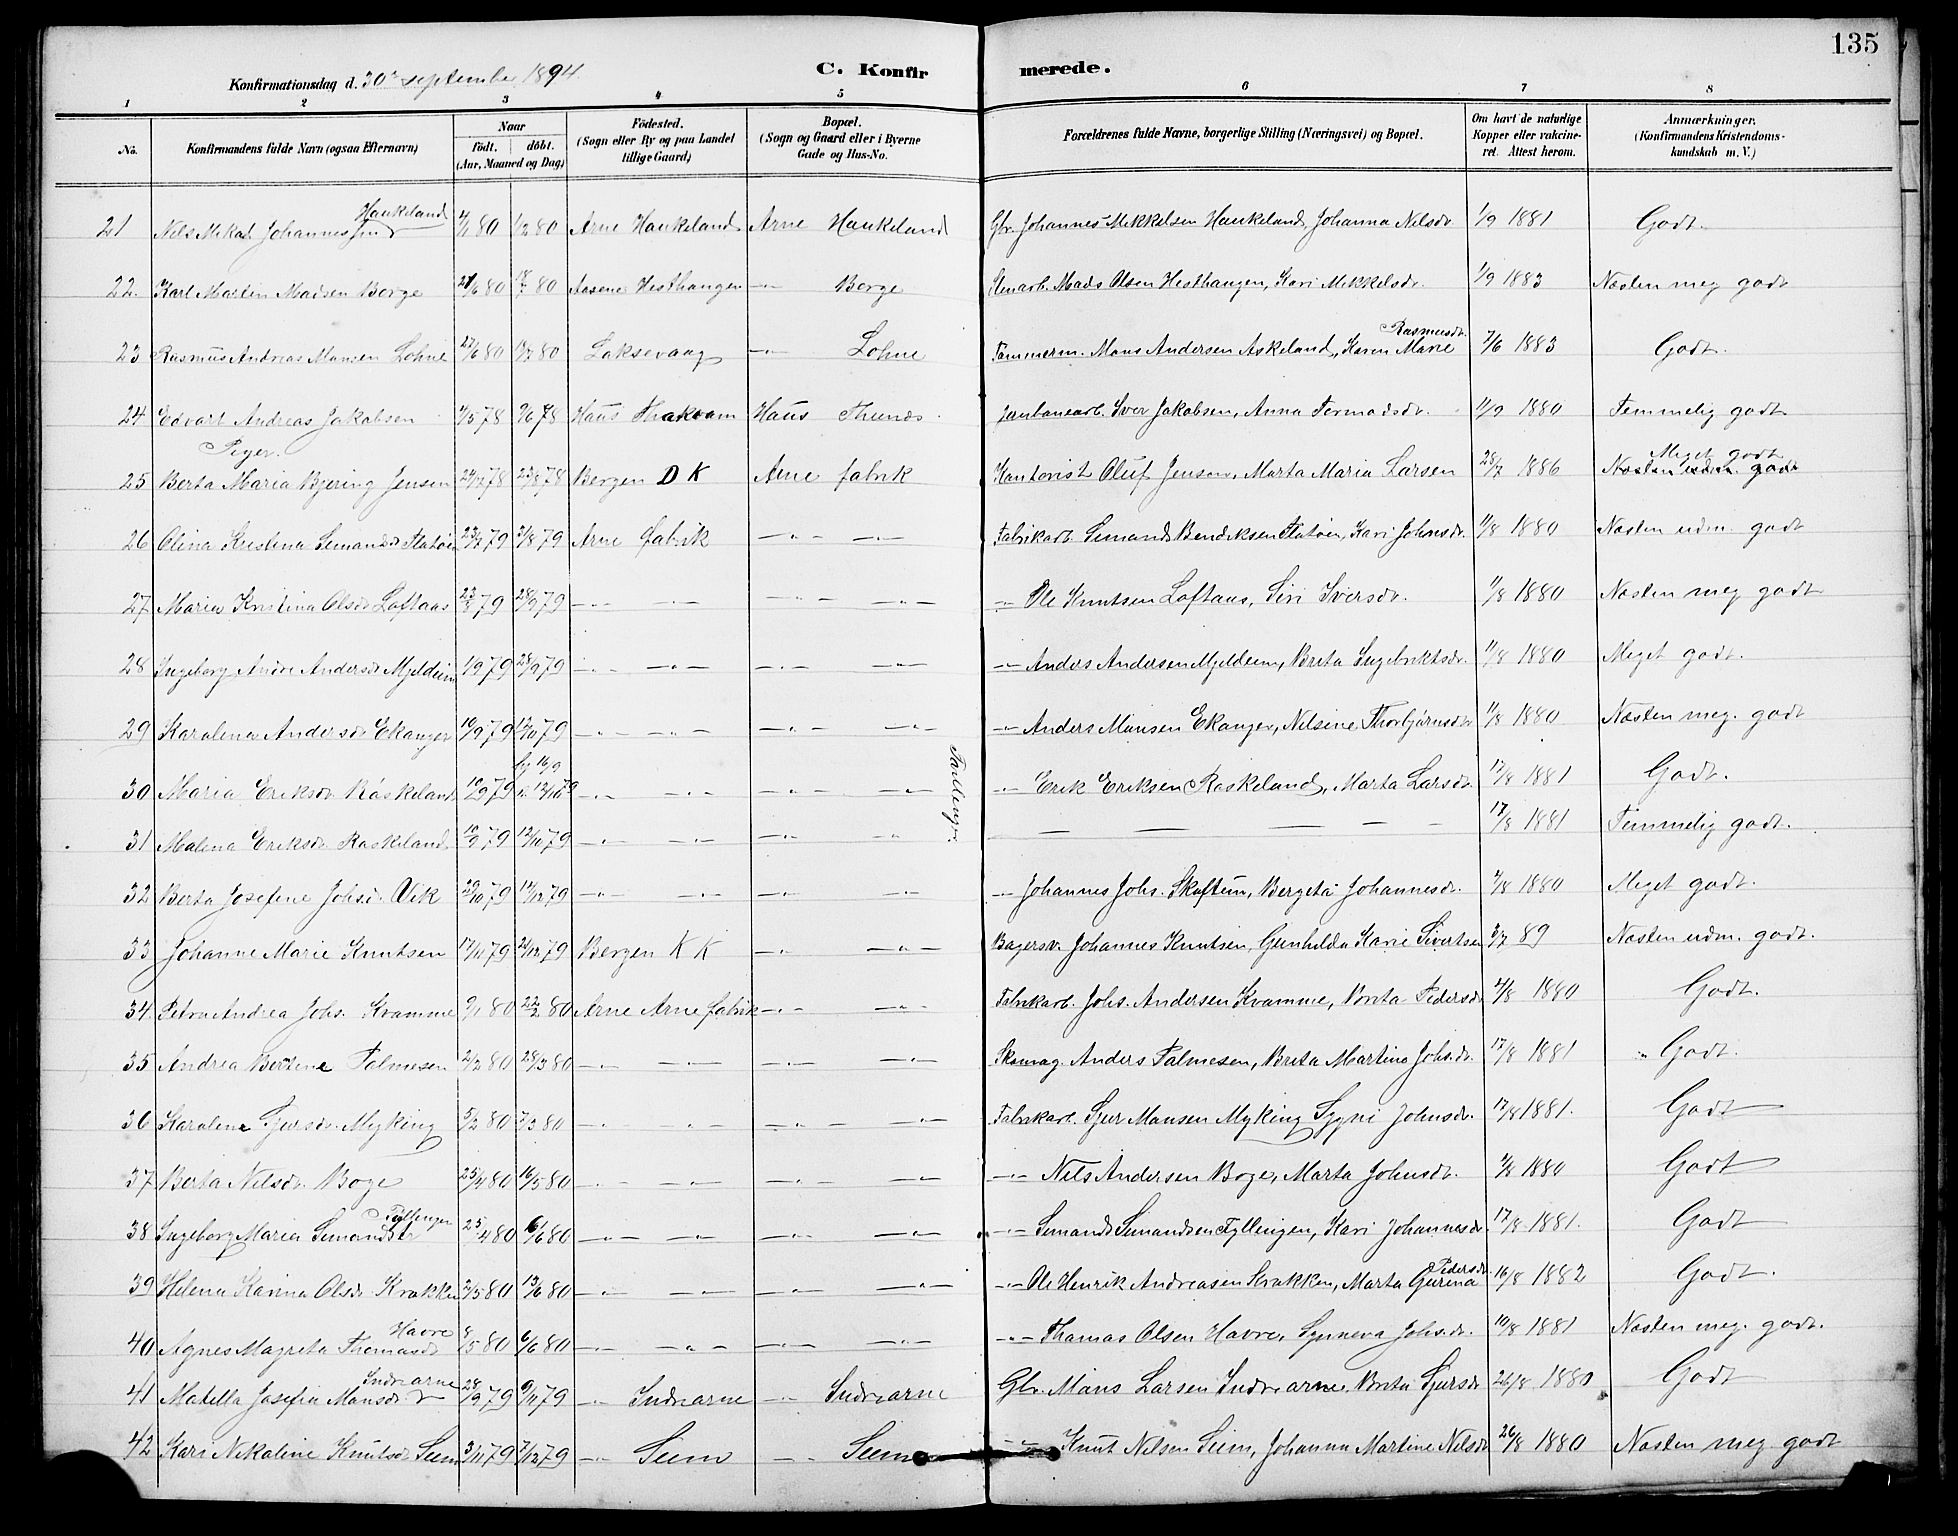 135
Konfirmationsdag d. 30te september 1894.
C. Konfirmerede.
1 2 3 4 5 6 7 8
No. Konfirmandens fulde Navn (ogsaa Efternavn) Naar født. døbt. (Aar, Maaned og Dag) Fødested. (Sogn eller By og paa Landet tillige Gaard) Bopæl. (Sogn og Gaard eller i Byerne Gade og Hus-No. Forældrenes fulde Navne, borgerlige Stilling (Næringsvei) og Bopæl. Om havt de naturlige Kopper eller vakcineret. Attest herom. Anmærkninger. (Konfirmandens Kristendomskundskab m. V.)
21 Nels Mikal Johannessen Haukeland 4/1 80 1/2 80 Arne Haukeland Arne Haukeland Gbr. Johannes Mikkelsen Haukeland, Johanna Nilsdr. 1/9 1881 Godt.
22. Karl Martin Madsen Borge 21/6 80 18/7 80 Aasene Hesthaugen —"— Borge Stenarb. Mads Olsen Hesthaugen, Kari Mikkelsdr. 1/9 1883 Næsten meg godt
23 Rasmus Andreas Monsen Lohne 27/6 80 80 Laksevaag —"— Lohne Tømmerm. Mons Andersen Askeland, Karen Marie Rasmusdr. 7/6 1883 Godt.
24 Edvart Andreas Jakobsen 4/5 78 9/6 78 Haus Thakvam Haus Thunæs. Jernbanearb. Iver Jakobsen, Anna Tormodsdr. 11/9 1880 Temmelig godt
Piger.
25 Berta Maria Bjering Jensen 78 25/8 78 Bergen D K Arne fabrik Kontorist Oluf Jensen, Marta Maria Larsen 28/7 1886 Meget godt
26 Olina Kristina Simonsdr Statøen 23/7 79 31/8 79 Arne fabrik —"— —"— Fabrikarb. Simond Bendiksen Statøen, Kari Johnsdr. 11/8 1880 Næsten udm. godt
27 Maria Kristina Olsdr Loftaas 23/8 79 28/9 79 —"— —"— —"— —"— —"— Ole Knutsen Loftaas, Siri Iversdr. 11/8 1880 Næsten meg godt
28 Ingeborg Andre Andersdr Mjeldeim 1/9 79 28/9 79 —"— —"— —"— —"— —"— Anders Andersen Mjeldeim, Brita Ingebriktsdr. 11/8 1880 Meget godt.
29 Karolina Andersdr Ekanger 10/9 79 12/10 79 —"— —"— —"— —"— —"— Anders Monsen Ekanger, Nilsine Thorbjørnsdr 11/8 1880 Næsten meg. godt
30 Maria Eriksdr. Raskeland 10/9 79 hj 16/9 i k. 12/10 79 —"— —"— —"— —"— Tvillinger —"— Erik Eriksen Raskeland, Marta Larsdr. 17/8 1881 Godt.
31 Malena Eriksdr Raskeland 10/9 79 12/10 79 —"— —"— —"— —"— — — — — — 17/8 1881 Temmelig godt.
32 Berta Josefine Johsdr Vik 29/10 79 14/12 79 —"— —"— —"— —"— —"— Johannes Johs. Skaftun, Bergeta Johannesdr. 4/8 1880 Meget godt.
33 Johanne Marie Knutsen 17/11 79 26/12 79 Bergen K K —"— —"— Bagersv. Johannes Knutsen, Gunhilda Karie Sivertsen 3/7 89 Næsten udm. godt.
34 Petra Andrea Johs. Kvamme 9/1 80 22/2 80 Arne Arne fabrik —"— —"— Fabrikarb. Johs. Andersen Kvamme, Brita Pedersdr 4/8 1880 Godt.
35 Andrea Bertine Palmesen 2/2 80 28/3 80 —"— —"— —"— —"— Skomag. Anders Palmesen, Brita Martine Johsdr. 17/8 1881 Godt.
36 Karolina Sjursdr. Myking 5/2 80 7/3 80 —"— —"— —"— —"— Fabrikarb. Sjur Monsen Myking Sygni Johnsdr. 17/8 1881. Godt
37 Berta Nilsdr. Boge 25/4 80 16/5 80 —"— —"— —"— —"— —"— Nils Andersen Boge, Marta Johnsdr. 4/8 1880 Godt
38 Ingeborg Maria Simonsdr Tyllingen 25/4 80 6/6 80 —"— —"— —"— —"— —"— Simond Simondsen Tyllingen, Kari Johannesdr 17/8 1881. Godt
39 Helena Karina Olsdr Krakken 2/5 80 13/6 80 —"— —"— —"— —"— —"— Ole Henrik Andreasen Krakken, Marta Gurina Pedersdr. 16/8 1882 Godt.
40 Agnes Magreta Thomasdr Havre 8/5 80 6/6 80 —"— —"— —"— —"— —"— Thomas Olsen Havre, Synneva Johsdr. 10/8 1881 Næsten meg. godt.
41 Matella Josefia Monsdr Indrearne 28/9 79 9/11 79 —"— Indrearne —"— Indrearne Gbr. Mons Larsen Indrearne, Brita Sjursdr 26/8 1880 Godt
42 Kari Nikoline Knutsdr Seim 3/11 79 7/12 79 —"— Seim —"— Seim —"— Knut Nilsen Seim, Johanna Martine Nilsdr 26/8 1880 Næsten meg godt